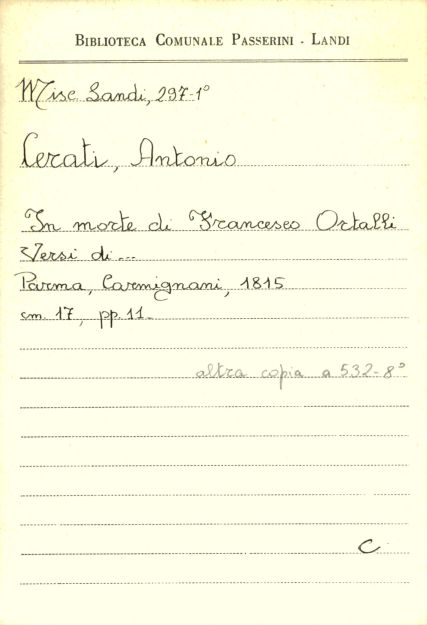 BIBLIOTECA COMUNALE PASSERINI - LANDI
Misc Landi, 297-1°
Cerati, Antonio
In morte di Francesco Ortalli
Versi di...
Parma, Carmignani, 1815
cm. 17, pp. 11.
altra copia a 532-8°
C